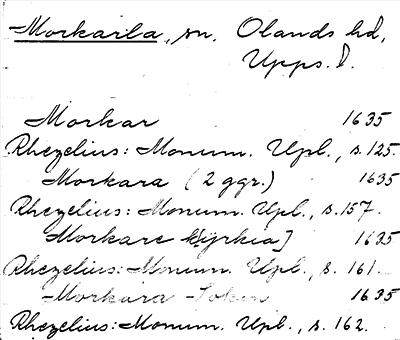 Morkarla, sn. Olands hd,
Upps. l.
Morkar 1635
Rhezelius: Monum. Upl., s. 125.
Morkara (2 ggr.) 1635
Rhezelius: Monum. Upl., s. 157.
Morkare k[yrkia] 1635
Rhezelius: Monum. Upl., s. 161.
Morkara Sokn 1635
Rhezelius: Monum. Upl., s. 162.